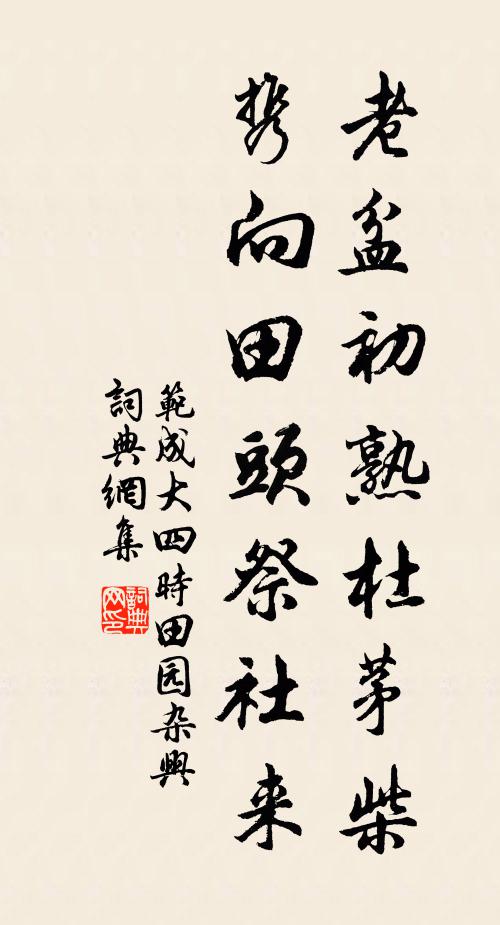 老盆初熟杜茅柴
携向田頭祭社来
範成大四時田园杂興
詞典網集
詞典
网印